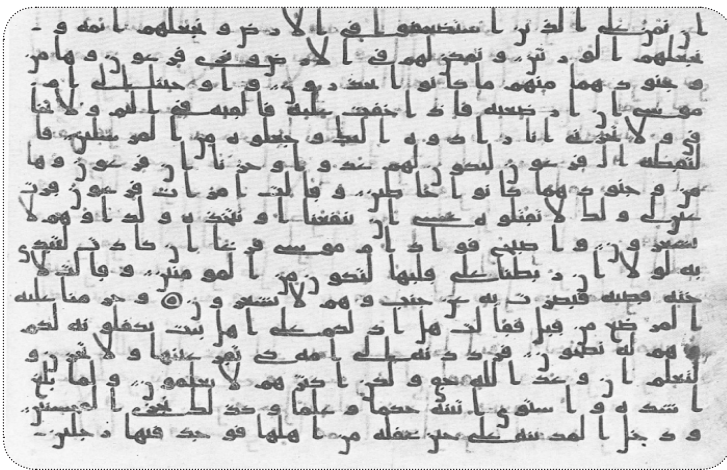 ان نمن على الذين استضعفوا في الارض و نجعلهم ائمه و
نجعلهم الورثين و نمكن لهم في الارض و نرى فرعون و هامن
و جنودهما منهم ما كانوا يحذرون و اوحينا الى ام
موسى ان ارضعيه فاذا خفت عليه فالقيه في اليم و لا تخا
في و لا تحزني انا رادوه اليك و جعلوه من المرسلين فا
لتقطه ال فرعون ليكون لهم عدوا و حزنا ان فرعون و ها
من و جنودهما كانوا خاطين و قالت امرات فرعون قرت
عين لي و لك لا تقتلوه عسى ان ينفعنا او نتخذه ولدا و هم لا
يشعرون و اصبح فواد ام موسى فرغا ان كادت لتبدي
به لولا ان ربطنا على قلبها لتكون من المومنين و قالت لا
خته قصيه فبصرت به عن جنب و هم لا يشعرون و حرمنا عليه
المرضع من قبل فقالت هل ادلكم على اهل بيت يكفلونه لكم
و هم له نصحون فرددنه الى امه كي تقر عينها و لا تحزن و
لتعلم ان وعد الله حق و لكن اكثرهم لا يعلمون و لما بلغ
اشده و استوى اتينه حكما و علما و كذلك نجزي المحسنين
و دخل المدينه على حين غفله من اهلها فوجد فيها رجلين